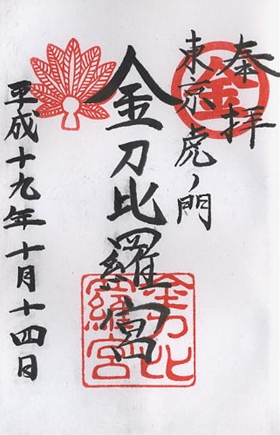 奉拝
金
東京虎ノ門
金刀比羅宮
金刀比
羅宮
平成十九年十月十四日